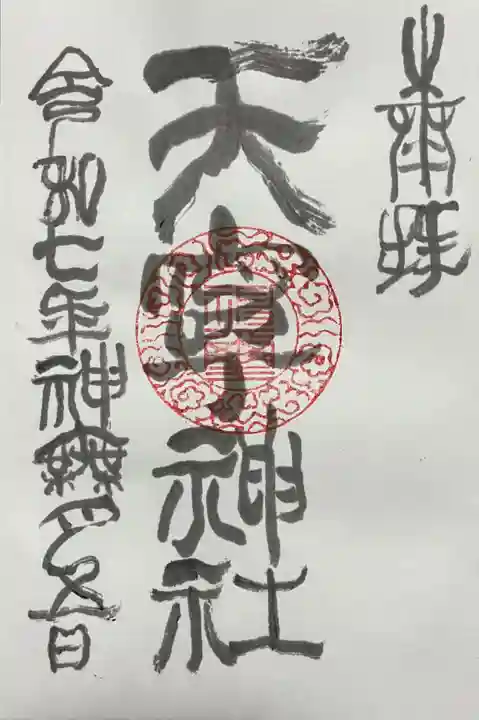 奉拝
天神社
令和七年神無月五日